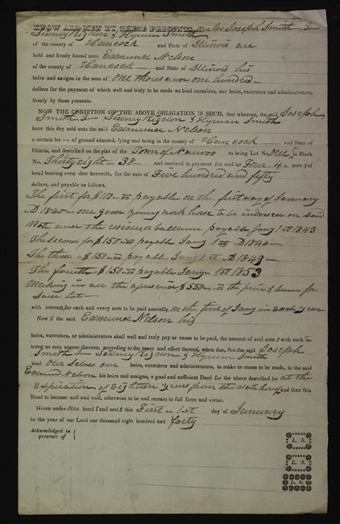 KNOW ALL MEN BY THESE PRESENTS, That we Joseph Smith Jr
Sidney Rigdon & Hyrum Smith
of the county of Hancock and State of Illinois are
held and firmly bound unto Edmund Nelson
of the county of Hancock and State of Illinois his
heirs and assigns in the sum of One thousand one hundred
dollars for the payment of which well and truly to be made we bind ourselves, our heirs, executors and administrators,
firmly by these presents.
NOW THE CONDITION OF THE ABOVE OBLIGATION IS SUCH, that whereas, the said Joseph
Smith Jr Sidney Rigdon & Hyrum Smith
have this day sold unto the said Edmund Nelson
a certain lot of ground situated, lying and being in the County of Hancock and State of
Illinois, and described on the plat of the Town of Nauvoo as being Lot No. One in Block
No. Thirty eight - 38 and received in payment for said lot Four - 4 note of
hand bearing even date herewith, for the sum of Five hundred and fifty
dollars, and payable as follows.
The first for $100 payable on the first day of January
AD 1840 one good young work horse to be indorsed on said
Note and the balance payable Jany 1st 1843
The second for $150 payable Jany 1st AD 18
The third $150 payable Jany 1st AD 1849
The fourth $150 payable Jany 1st 1853
Making in all the aforesaid $550 the price & sum for
said lot
with interest for each and every note to be paid annually on the first of Jany in each year
Now if the said Edmund Nelson his
heirs, executors, or administrators shall well and truly pay or cause to be paid, the amount of said note with each interest
as may accrue thereon, according to the tenor and effect thereof, when due, then the said Joseph
Smith Jr Sidney Rigdon & Hyrum Smith
bind Our selves our heirs, executors and administrators, to make or cause to be made, to the said
Edmund Nelson his heirs and assigns, a good and sufficient Deed for the above described lot at the
expiration of Eighteen years from the date hereof and then this
Bond to become null and void, otherwise to be and remain in full force and virtue.
Given under our hand and seal this First - 1st day of January
in the year of our Lord one thousand eight hundred and forty
Acknowledged in
presence of
L. S.
L. S.
L. S.